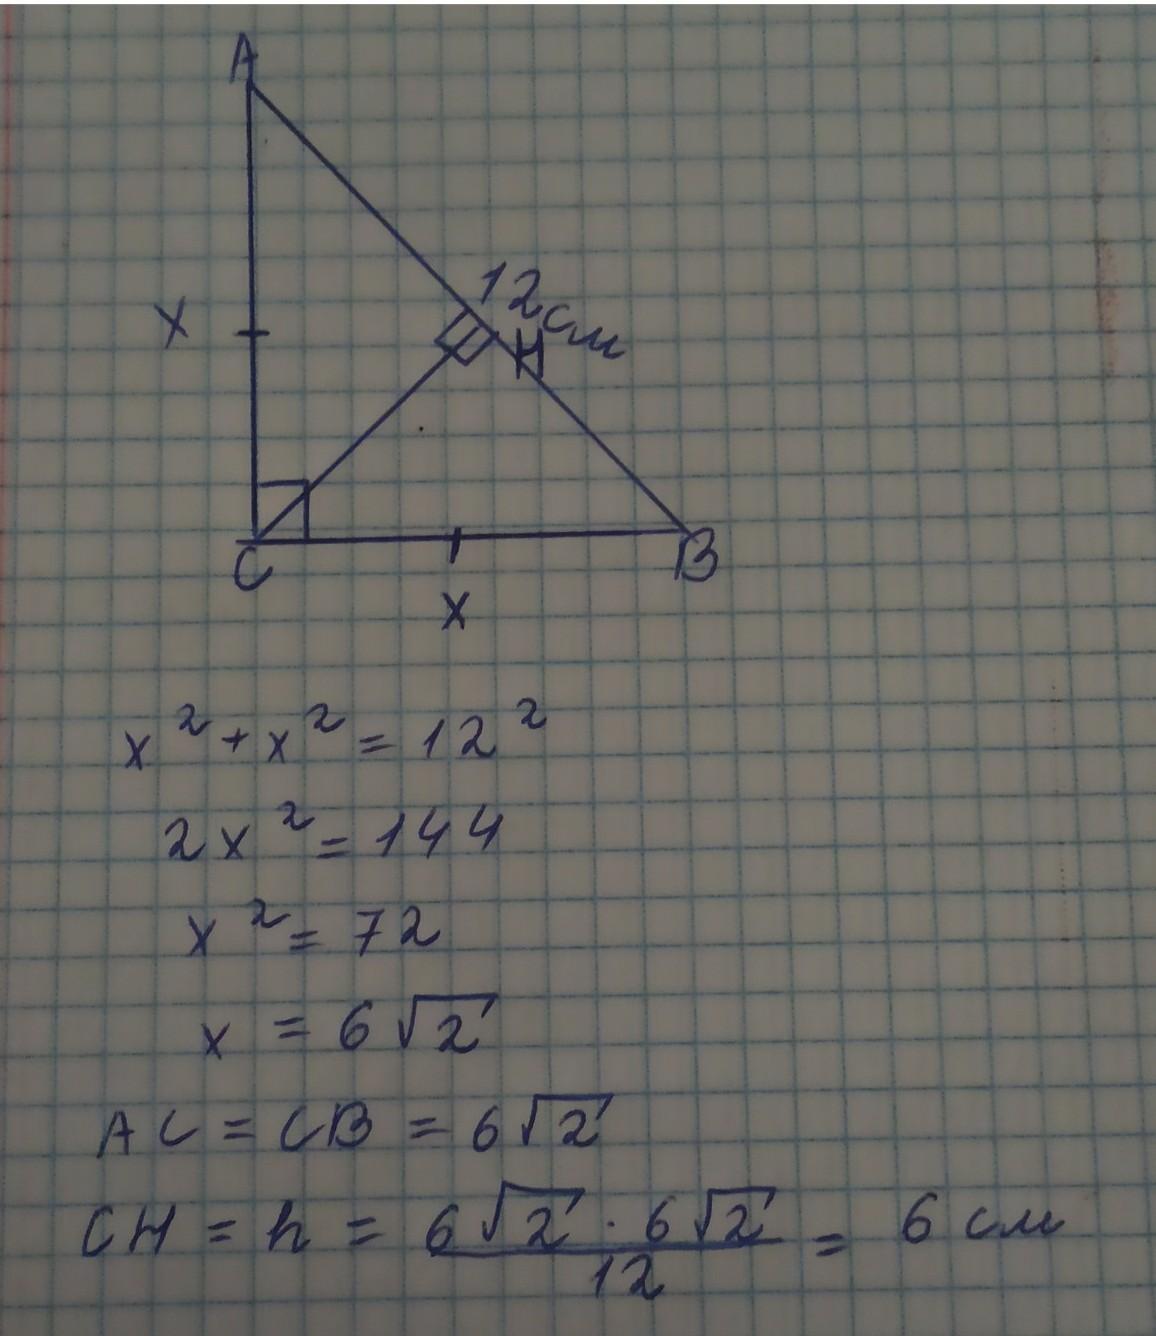 A
12 см
H
x
C
B
x
x² + x² = 12²
2x² = 144
x² = 72
x = 6√2
AC = CB = 6√2
CH = h = 6√2 · 6√2 / 12 = 6 см